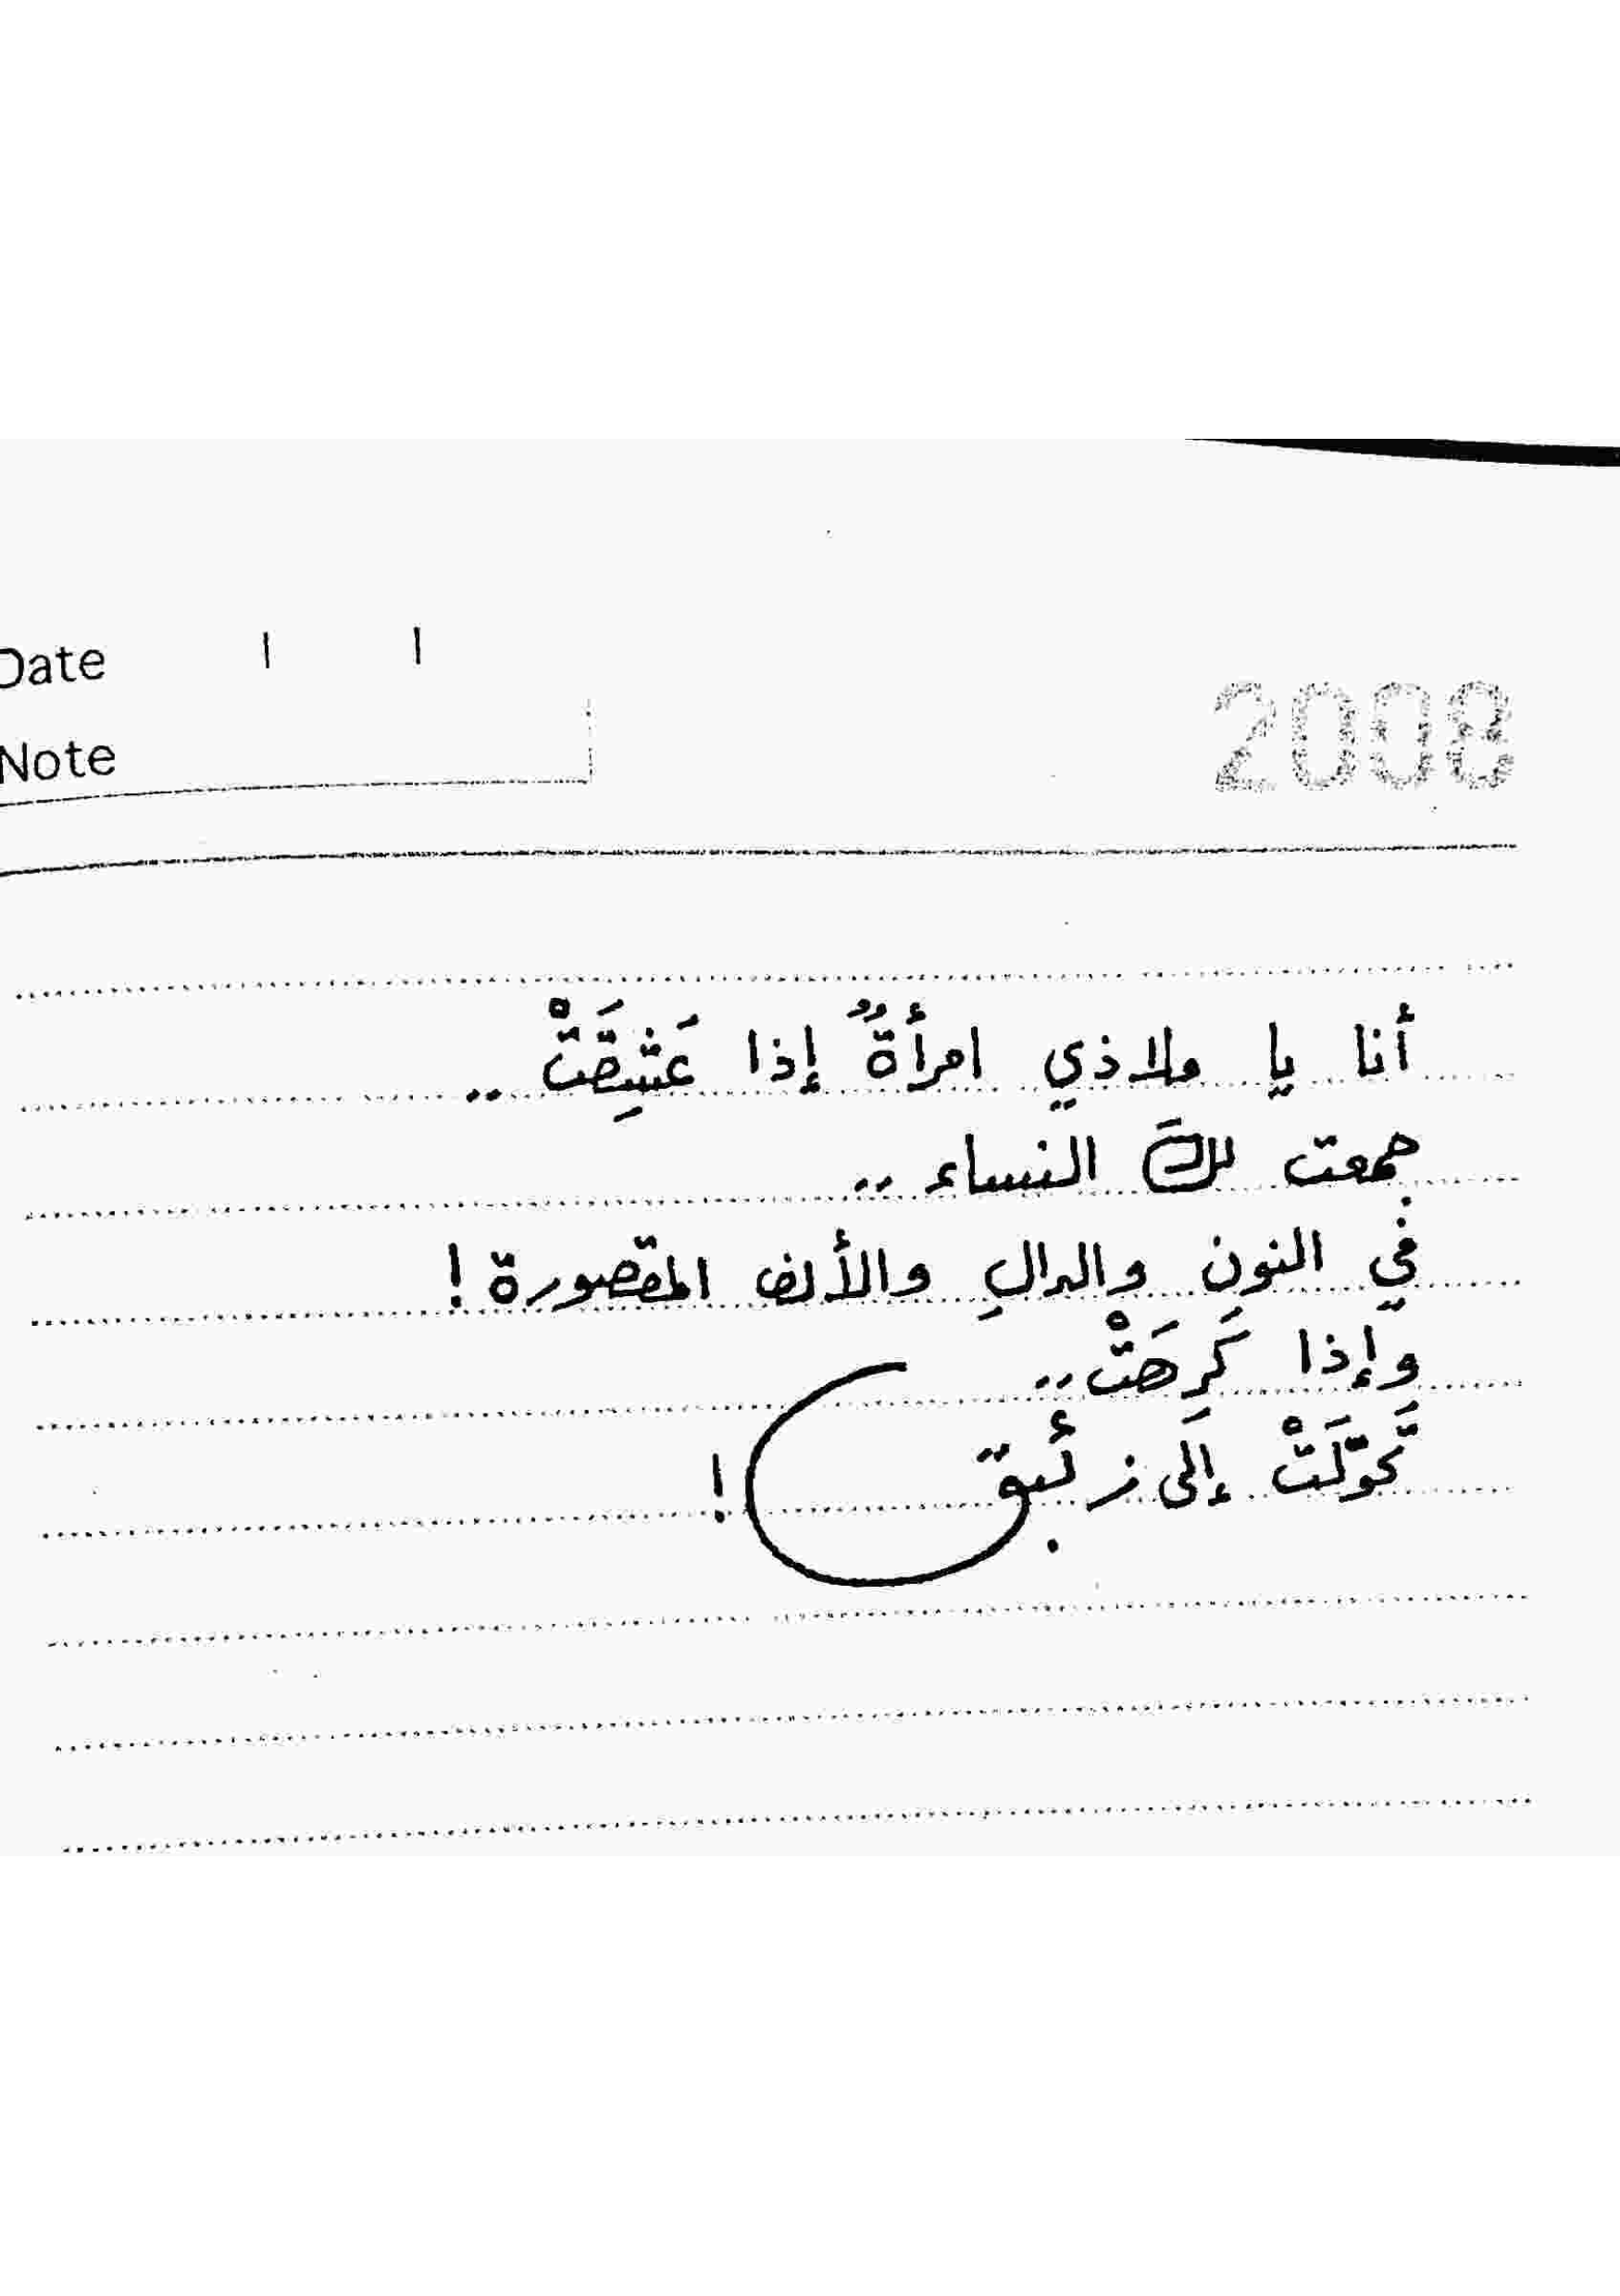 Date / /
2008
Note
أنا يا ملاذي امرأةٌ إذا عَشِقَتْ ..
جمعت لكَ النساء ..
في النونِ والدالِ والألف المقصورة !
وإذا كَرِهَتْ ..
تَحَوَّلَتْ إلى زئبق !